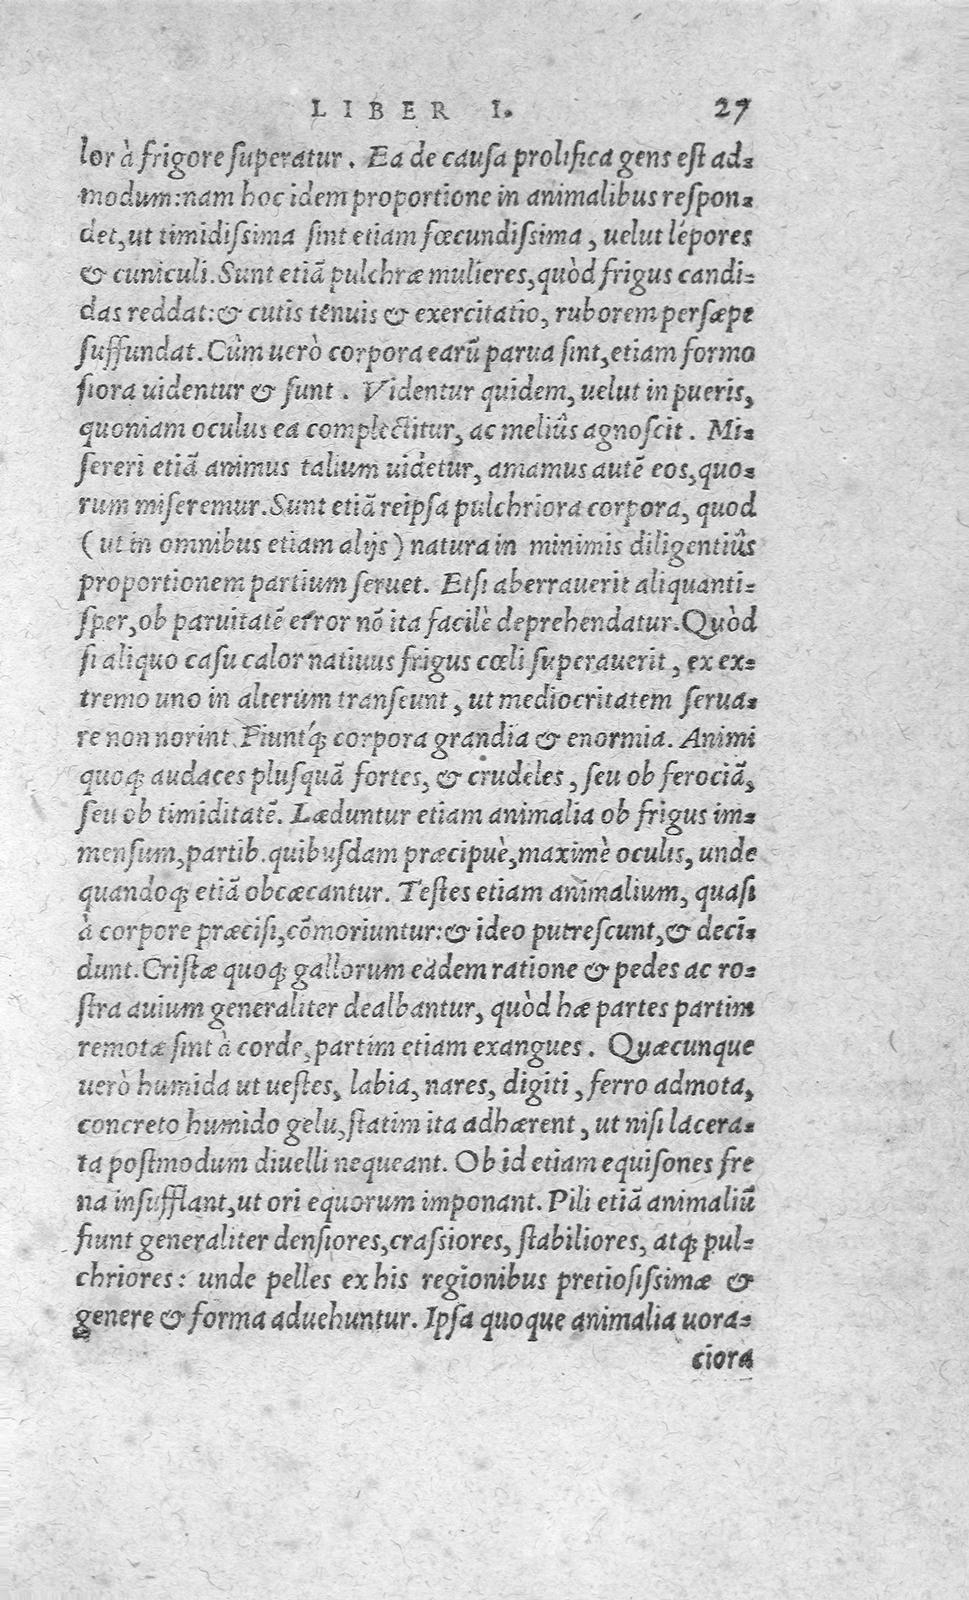 LIBER I. 27
lor à frigore ſuperatur. Ea de cauſa prolifica gens eſt ad-
modum: nam hoc idem proportione in animalibus reſpon-
det, ut timidiſsima ſint etiam fœcundiſsima, uelut lépores
& cuniculi. Sunt etiã pulchræ mulieres, quòd frigus candi-
das reddat: & cutis tenuis & exercitatio, ruborem perſæpe
ſuffundat. Cûm uerò corpora earũ parua ſint, etiam formo
ſiora uidentur & ſunt. Videntur quidem, uelut in pueris,
quoniam oculus ea complectitur, ac meliûs agnoſcit. Mi-
ſereri etiã animus talium uidetur, amamus autẽ eos, quo-
rum miſeremur. Sunt etiã reipſa pulchriora corpora, quod
(ut in omnibus etiam alijs) natura in minimis diligentiûs
proportionem partium ſeruet. Etſi aberrauerit aliquanti-
ſper, ob paruitatẽ error nõ ita facilè deprehendatur. Quòd
ſi aliquo caſu calor natiuus frigus cœli ſuperauerit, ex ex-
tremo uno in alterùm tranſeunt, ut mediocritatem ſerua-
re non norint. Fiuntq́; corpora grandia & enormia. Animi
quoq; audaces pluſquã fortes, & crudeles, ſeu ob ferociã,
ſeu ob timiditatẽ. Læduntur etiam animalia ob frigus im-
menſum, partib. quibuſdam præcipuè, maximè oculis, unde
quandoq; etiã obcæcantur. Teſtes etiam animalium, quaſi
à corpore præciſi, cõmoriuntur: & ideo putreſcunt, & deci-
dunt. Criſtæ quoq; gallorum eadem ratione & pedes ac ro-
ſtra auium generaliter dealbantur, quòd hæ partes partim
remotæ ſint à corde, partim etiam exangues. Quæcunque
uerò humida ut ueſtes, labia, nares, digiti, ferro admota,
concreto humido gelu, ſtatim ita adhærent, ut niſi lacera-
ta poſtmodum diuelli nequeant. Ob id etiam equiſones fre
na inſufflant, ut ori equorum imponant. Pili etiã animaliũ
fiunt generaliter denſiores, craſsiores, ſtabiliores, atq; pul-
chriores: unde pelles ex his regionibus pretioſiſsimæ &
genere & forma aduehuntur. Ipſa quoque animalia uora-
ciora